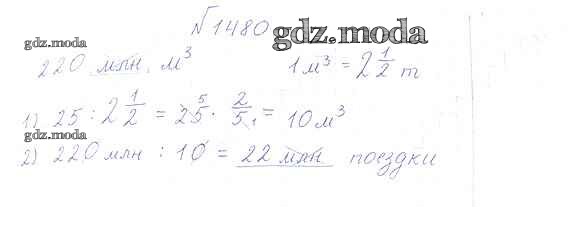 №1480 gdz.moda
gdz.moda
220 млн. м³ 1 м³ = 2 1/2 т
1) 25 : 2 1/2 = 25⁵ · 2/5₁ = 10 м³
gdz.moda
2) 220 млн : 10 = 22 млн поездки